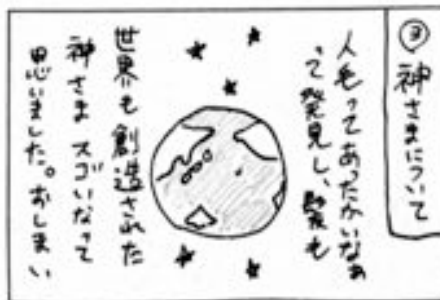 ③神さまについて
人毛ってあったかいなぁ
って発見し、髪も
世界も創造された
神さまスゴいなって
思いました。おしまい